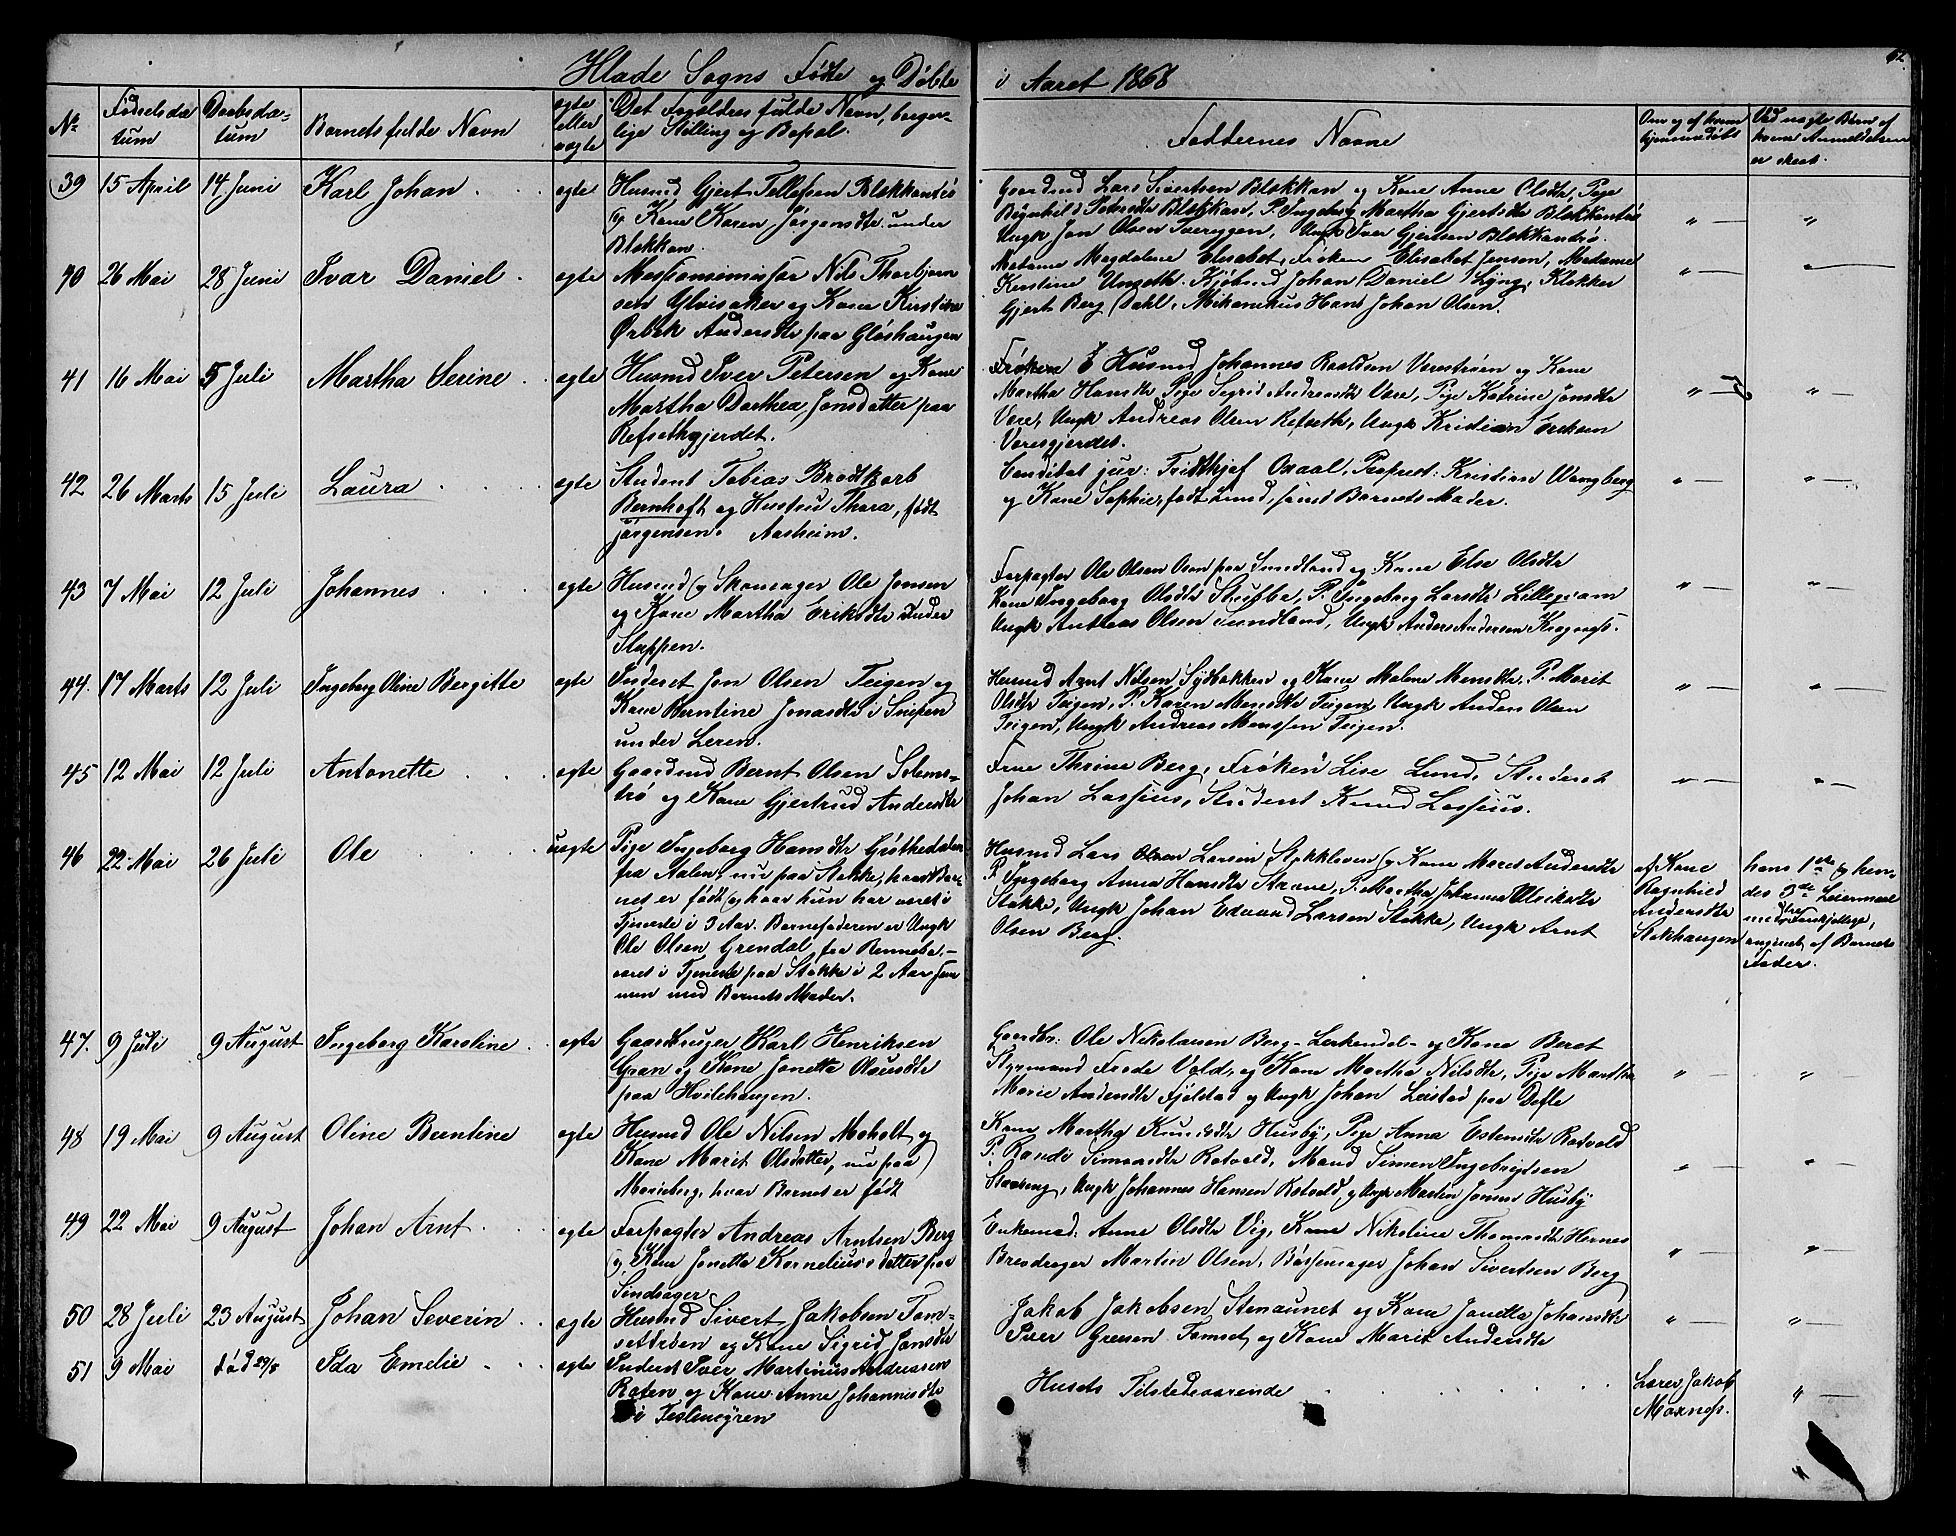 Hlade Sogns Fødte og Døbte i Aaret 1868
62.
No
Fødselsdatum
Daabsdatum
Barnets fulde Navn
ægte eller uægte
Det Forældres fulde Navn, borgerlige Stilling og Bopæl.
Faddernes Navne
Om og af hvem hjemmedøbt
Ved uægte Børn af hvem Anmeldelsen er skeet.
39 15 April 14 Juni Karl Johan ægte
Husmd Gjert Tellefsen Blokkantrø
og Kone Karen Jørgensdtr under
Blokkan.
Gaardmd Lars Sivertsen Blokkan og Kone Anne Olsdtr, Pige
Bøynhild Petersdtr Blokkan, P. Ingeborg Martha Gjertsdtr Blokkantrø
Ungk Jon Olsen Tvereggen, Ungk Iver Gjertsen Blokkantrø.
" "
40 26 Mai 28 Juni Ivar Daniel ægte
Missionsminister Nils Thorbjørn
sen Gloisaker og Kone Kirstine
Ørbek Andersdtr paa Gløshaugen
Madame Magdalene Elisabet, Frøken Elisabet Jensen, Madame
Kirstine Ungeth, Kjøbmd Johan Daniel Lyng, Klokker
Gjert Berg Dahl, Mekanikus Hans Johan Olsen.
" "
41 16 Mai 5 Juli Martha Serine ægte
Husmd Iver Petersen og Kone
Martha Dorthea Jonsdatter paa
Refsethgjerdet.
Frøken E Husmd Johannes Roaldsen Verestrøen og Kone
Martha Hansdtr Pige Sigrid Andersdtr Vere, Pige Katrine Jonsdtr
Vere, Ungk Andreas Olsen Refseth, Ungk Kristian Eriksen
Veresgjerdet.
" "
42 26 Marts 15 Juli Laura ægte
Student Tobias Brodtkorb
Bernhoft og Hustru Thora, født
Jørgensen. Aasheim.
Candidat jur: Fridthjof Oxaal, Proprist: Kristian Wangberg
og Kone Sophie, født Lund, samt Barnets Moder.
" "
43 7 Mai 12 Juli Johannes ægte
Husmd og Skomager Ole Jonsen
og Kone Martha Eriksdtr under
Stuppen.
Forpagter Ole Olsen Oren paa Sundland og Kone Else Olsdtr
Kone Ingeborg Olsdtr Stubbe, P. Ingeborg Larsdtr Lillegram
Ungk Andreas Olsen Sundland, Ungk Anders Andersen Krognæss.
" "
44. 17 Marts 12 Juli Ingeborg Oline Bergitte ægte
Inderst Jon Olsen Teigen og
Kone Berntine Jonasdtr i Snipen
under Leren.
Husmd Arnt Nilsen Sydbakken og Kone Malene Monsdtr. P. Marit
Olsdtr Teigen, P. Karen Monsdtr Teigen, Ungk Anders Olsen
Teigen, Ungk Andreas Monssen Teigen.
" "
45 12 Mai 12 Juli Antonette ægte
Gaardmd Bernt Olsen Solems-
trø og Kone Gjertrud Andersdtr
Frue Thrine Berg, Frøken Lise Lund, Student
Johan Lassius, Student Knud Lassius.
" "
46 22 Mai 26 Juli Ole uægte
Pige Ingeborg Hansdtr Gjøthedalen
fra Aalen, nu paa Stokke, hvor Bar-
net er født og hvor hun har været i
Tjeneste i 3 Aar. Barnefaderen er Ungk
Ole Olsen Grendal fra Rennebo,-
været i Tjeneste paa Stokke i 2 Aar sam-
men med Barnets Moder.
Husmd Lars Olsen Larsen Stokkleven og Kone Maret Andersdtr
P. Ingeborg Anna Hansdtr Strøne, P. Martha Johanna Ulriksdtr
Stokke, Ungk Johan Edvard Larsen Stokke, Ungk Arnt
Olsen Berg.
af Kone
Ragnhild
Andersdtr
Stokhaugen
hans 1ste og hen-
des 3die Leiermaal
med tre forskjellige,
angivet af Barnets
Fader.
47. 9 Juli 9 August Ingeborg Karoline ægte
Gaardbruger Karl Henriksen
Gran og Kone Jonetta Olausdtr
paa Hvilehaugen.
Gaardbr: Ole Nikolaisen Berg - Lerkendal - og Kone Beret
Styrmand Frode Vold, og Kone Martha Nilsdtr, Pige Martha
Marie Andersdtr Fjølstad og Ungk Johan Leistad paa Defle
" "
48 19 Mai 9 August Oline Berntine ægte
Husmd Ole Nilsen Moholt og
Kone Marit Olsdatter, nu paa
Marieborg, hvor Barnet er født
Kone Martha Knudsdtr Husby, Pige Anna Estensdtr Rotvold
P. Randi Simonsdtr Rotvold, Mand Simen Ingebrigtsen
Stavning, Ungk Johannes Hansen Rotvold, og Ungk Martin Jonsen Husby
" "
49 22 Mai 9 August Johan Arnt ægte
Forpagter Andreas Arntsen Berg
og Kone Jonetta Korneliusdatter paa
Sindsager
Enkemad: Anne Olsdtr Vig, Kone Nikoline Thomasdtr Hernes
Bresdroger Martin Olsen, Bøssemager Johan Sivertsen Berg
" "
50 28 Juli 23 August Johan Severin ægte
Husmd Sivert Jakobsen Tom-
setteien og Kone Sigrid Jonsdtr
Jakob Jakobsen Stenaunet og Kone Janetta Johansdtr
Iver Geersen Tomset, og Kone Marit Andersdtr
" "
51 9 Mai død 29/5 Ida Emelie ægte
Inderst Iver Martinus Andreassen
Roten og Kone Anne Johannisdtr
i Teslimyren
Husets Tilstedeværende
Lærer Jakob
Moxness.
"